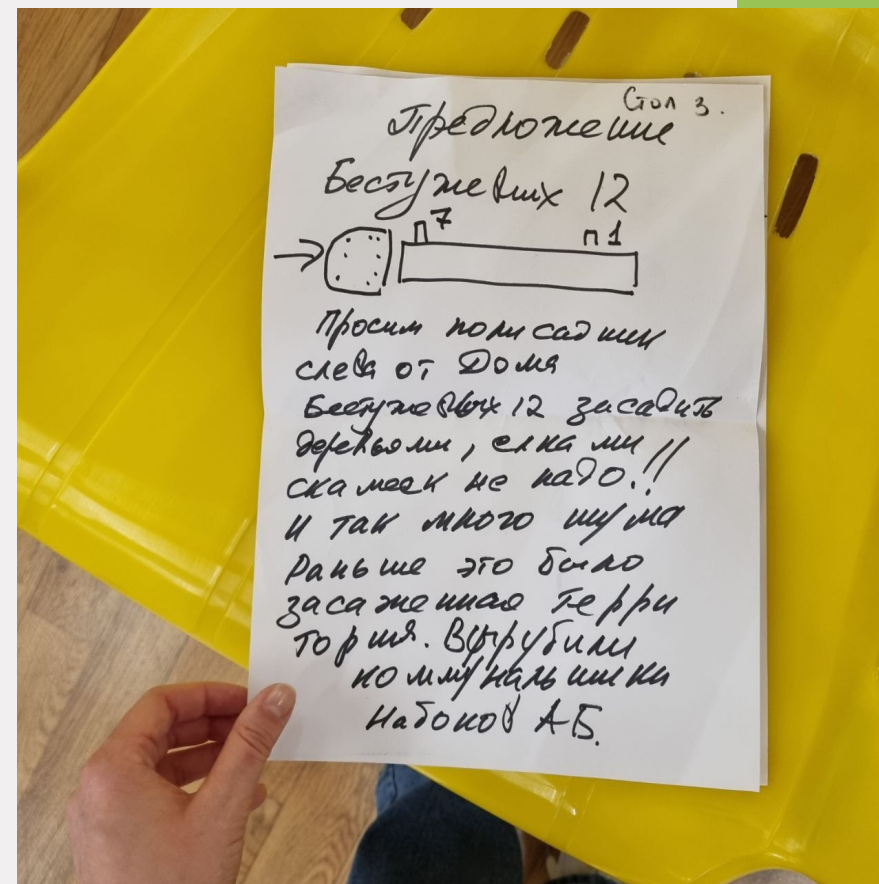 Стол 3.
Предложение
Бестужевых 12
7
п 1
Просим полисадник
слева от Дома
Бестужевых 12 засадить
деревьями, елками
скамеек не надо.!!
и так много шума
Раньше это было
засаженная терри
тория. Вырубили
коммунальщики
Набоков А.Б.